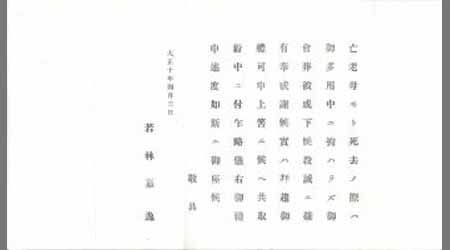 亡老母モト死去ノ際ハ
御多用中ニ拘ハラズ御
會葬被成下候段誠ニ難
有奉感謝候實ハ拜趨御
禮可申上筈ニ候ヘ共取
紛中ニ付乍略儀右御禮
申述度如斯ニ御座候
敬具
大正十年四月三日
若林